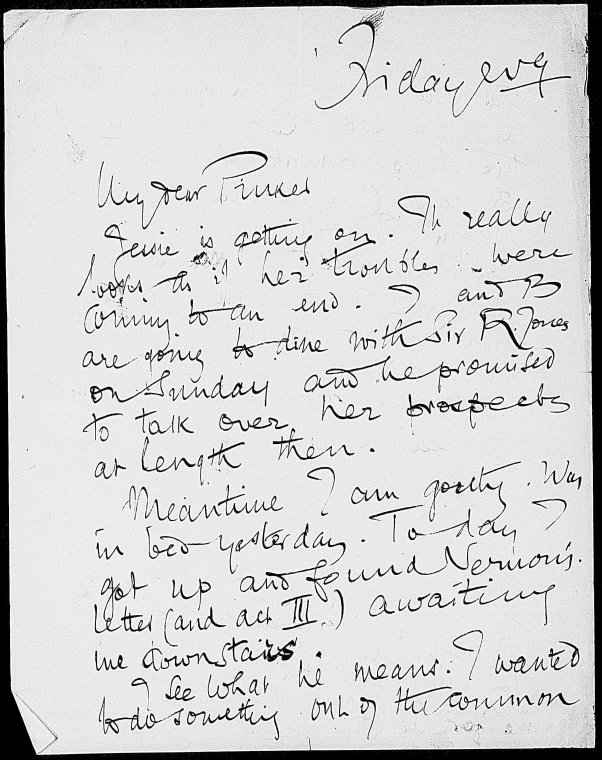 Friday evg
My dear Pinker
Jessie is getting on. It really
looks as if her troubles were
coming to an end. I and B
are going to dine with Sir R. Jones
on Sunday and he promised
to talk over her prospects
at length then.
Meantime I am gouty. Was
in bed yesterday. To day I
got up and found Vernon's.
letter (and act III.) awaiting
me downstairs.
I see what he means. I wanted
to do something out of the common